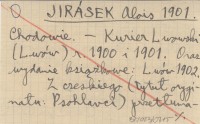 JIRÁSEK Alois 1901.
Chodowie. – Kurier Lwowski
(Lwów) r. 1900 i 1901. Oraz
wydanie książkowe: Lwów 1902.
Z czeskiego (tytuł orygi-
nału: Psohlavci) przetłuma-